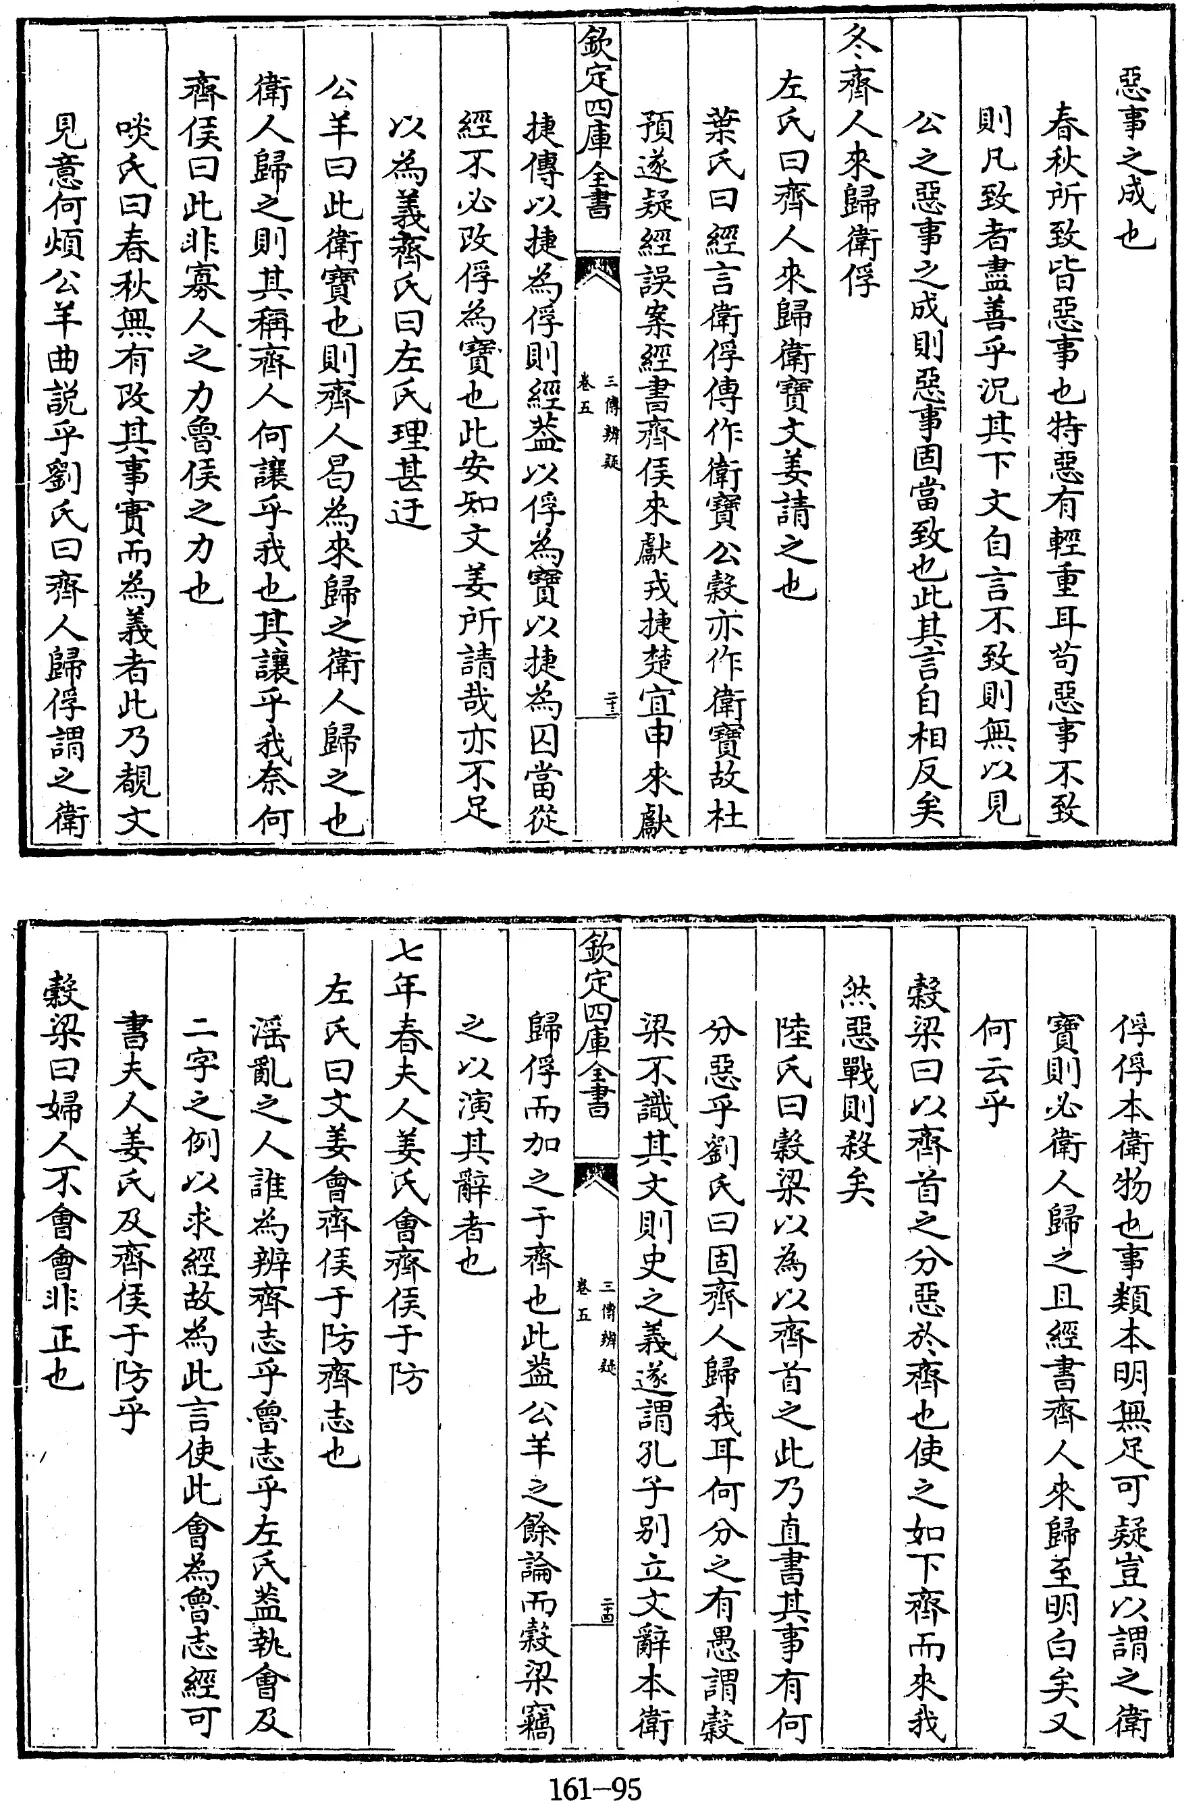 惡事之成也
春秋所致皆惡事也特惡有輕重耳苟惡事不致
則凡致者盡善乎況其下文自言不致則無以見
公之惡事之成則惡事固當致也此其言自相反矣
冬齊人來歸衛俘
左氏曰齊人來歸衛寶文姜請之也
葉氏曰經言衛俘傳作衛寶公縠亦作衛寶故杜
預遂疑經誤案經書齊侯來獻戎捷楚宜申來獻
欽定四庫全書
三傳辨疑
卷五
二十三
捷傳以捷為俘則經葢以俘為寶以捷為囚當從
經不必改俘為寶也此安知文姜所請哉亦不足
以為義齊氏曰左氏理甚迂
公羊曰此衛寶也則齊人曷為來歸之衛人歸之也
衛人歸之則其稱齊人何讓乎我也其讓乎我奈何
齊侯曰此非寡人之力魯侯之力也
啖氏曰春秋無有改其事實而為義者此乃覩文
見意何煩公羊曲説乎劉氏曰齊人歸俘謂之衛
俘俘本衛物也事類本明無足可疑豈以謂之衛
寶則必衛人歸之且經書齊人來歸至明白矣又
何云乎
縠梁曰以齊首之分惡於齊也使之如下齊而來我
然惡戰則殺矣
陸氏曰縠梁以為以齊首之此乃直書其事有何
分惡乎劉氏曰固齊人歸我耳何分之有愚謂縠
梁不識其文則史之義遂謂孔子別立文辭本衛
欽定四庫全書
三傳辨疑
卷五
二十四
歸俘而加之于齊也此葢公羊之餘論而縠梁竊
之以演其辭者也
七年春夫人姜氏會齊侯于防
左氏曰文姜會齊侯于防齊志也
滛亂之人誰為辨齊志乎魯志乎左氏葢執會及
二字之例以求經故為此言使此會為魯志經可
書夫人姜氏及齊侯于防乎
縠梁曰婦人不會會非正也
161-95